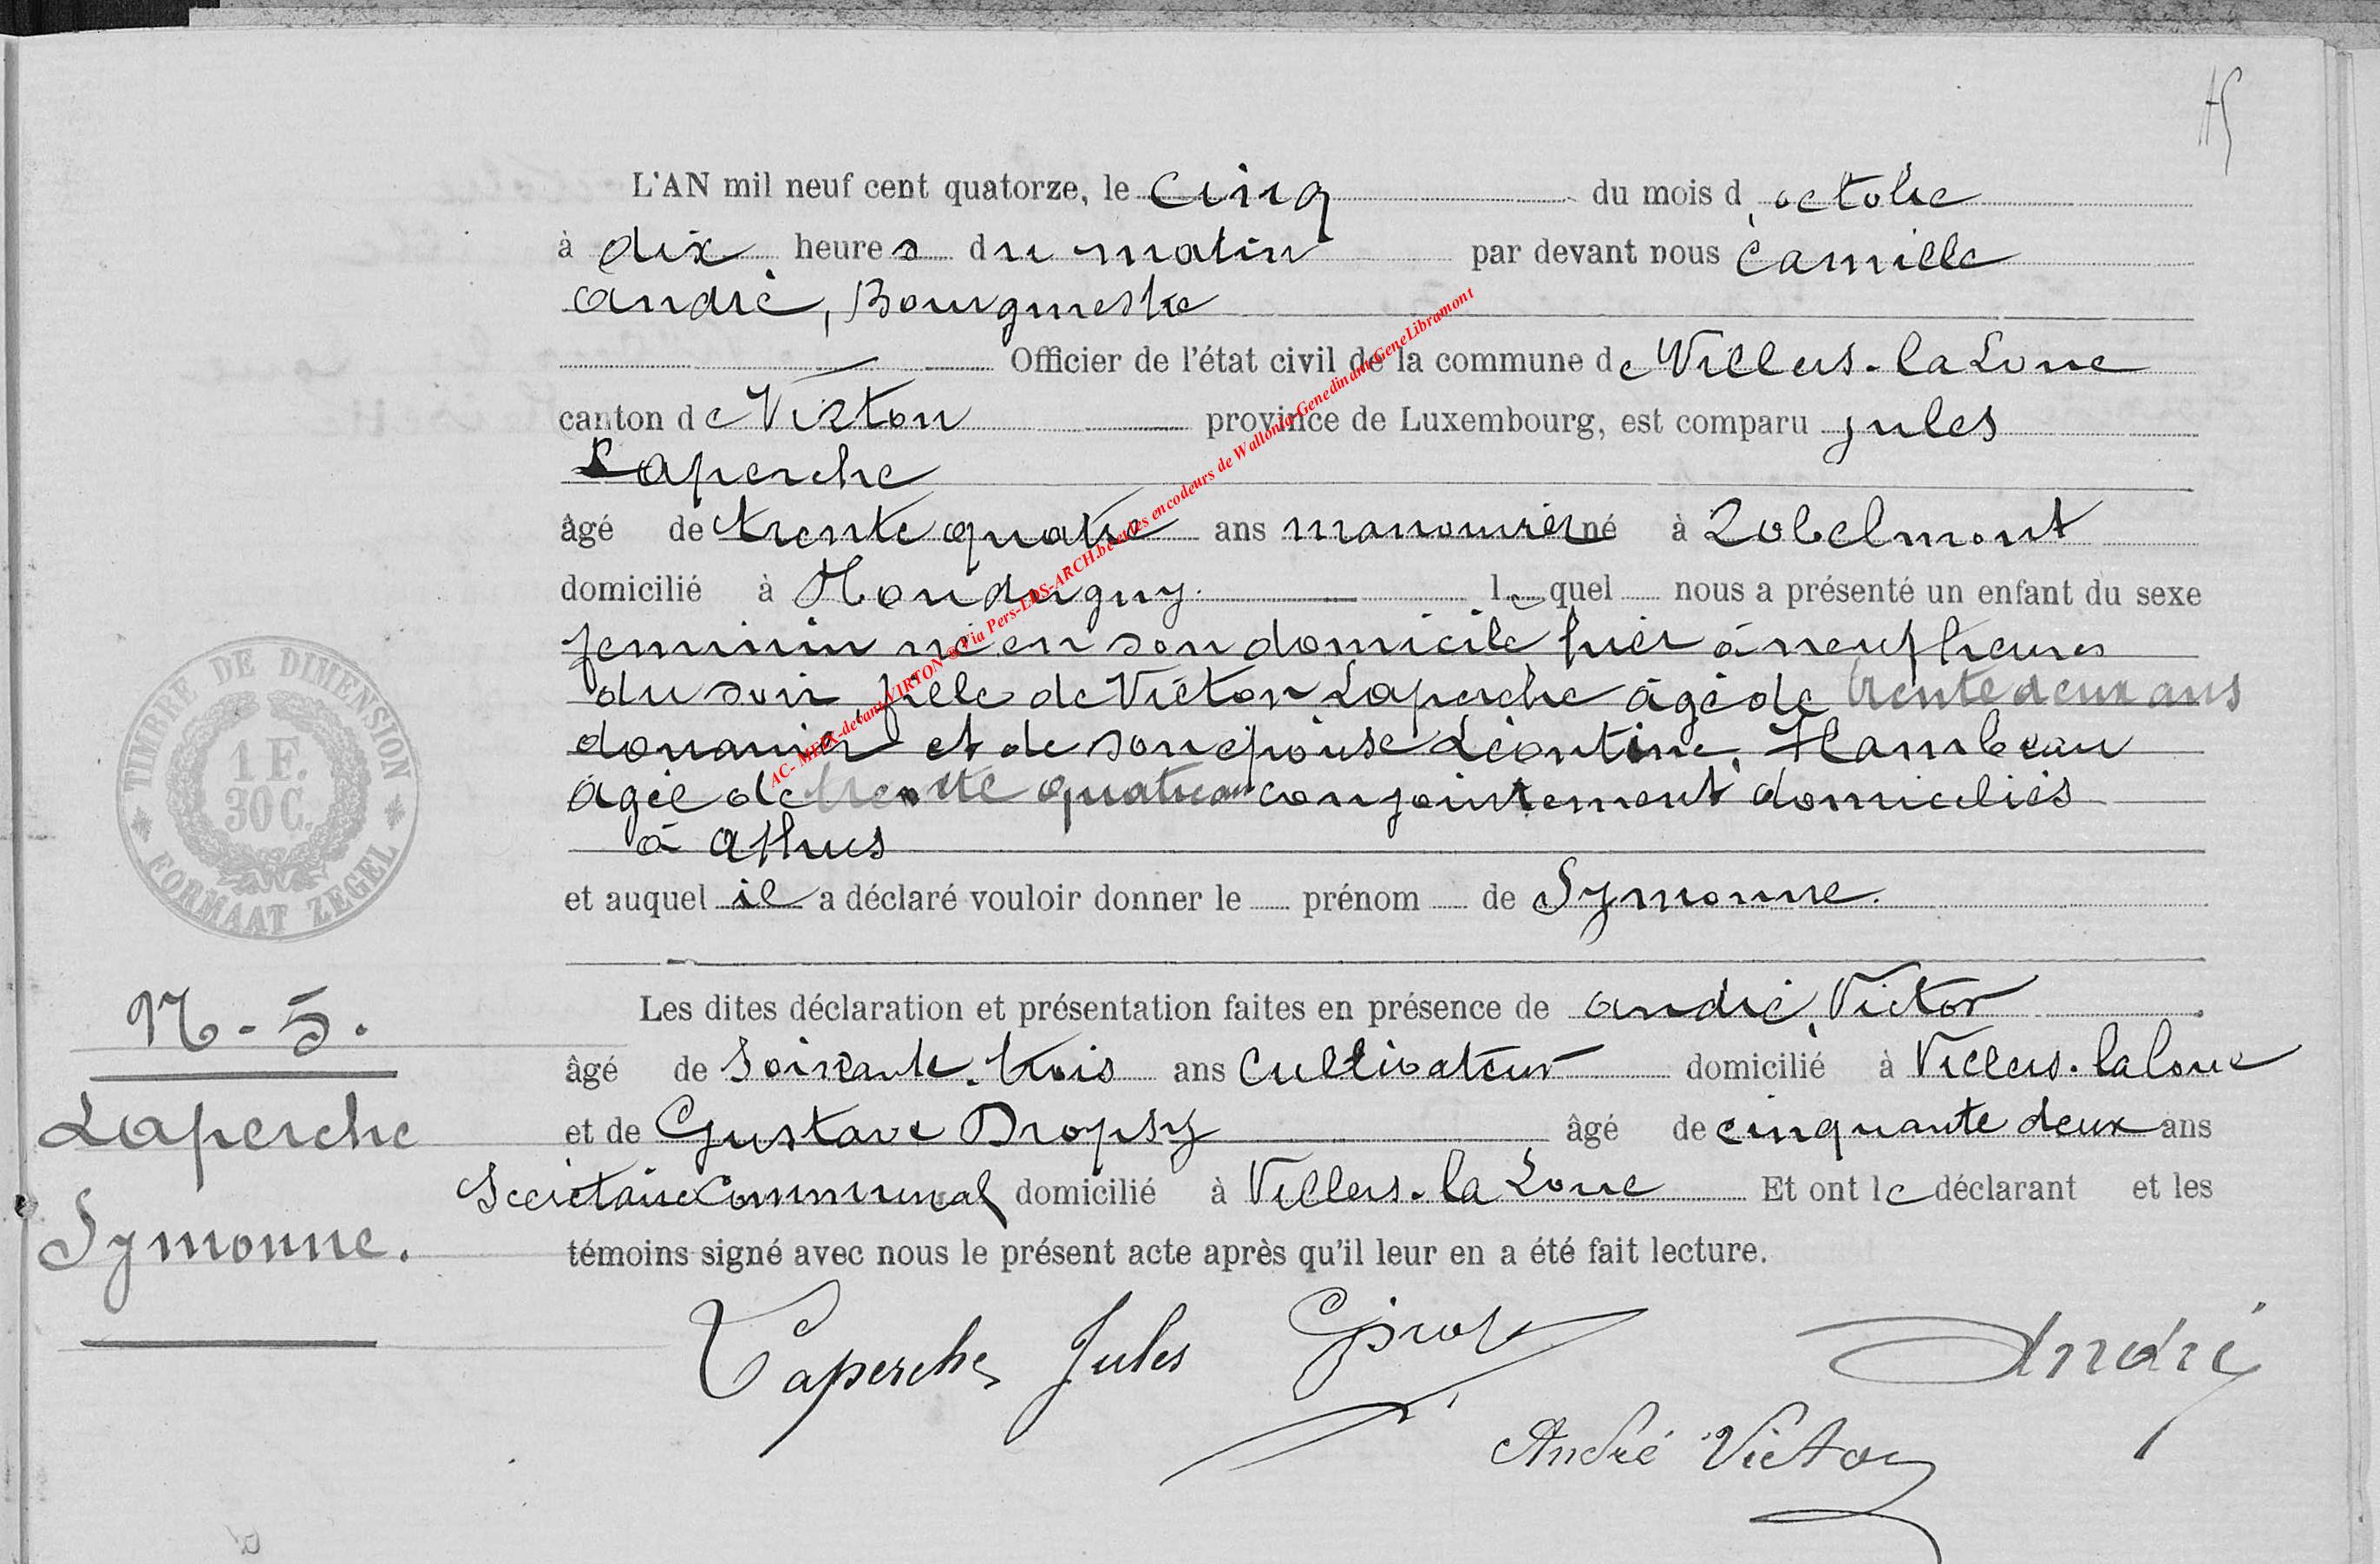 L'AN mil neuf cent quatorze, le cinq du mois d'octobre
à dix heures du matin par devant nous Camille
André, Bourgmestre
Officier de l'état civil de la commune de Villers-la Loue
canton de Virton province de Luxembourg, est comparu Jules
Laperche
âgé de trente quatre ans manouvrier né à Robelmont
domicilié à Houdrigny. lequel nous a présenté un enfant du sexe
feminin né en son domicile hier à neuf heures
du soir, fille de Victor Laperche âgé de trente deux ans
douanier et de son épouse Léontine, Flambeau
âgée de trente quatre ans conjointement domiciliés
à Athus
et auquel il a déclaré vouloir donner le prénom de Symonne.
Les dites déclaration et présentation faites en présence de André, Victor
âgé de soixante-trois ans cultivateur domicilié à Villers-la Loue
et de Gustave Dropsy âgé de cinquante deux ans
Secrétaire Communal domicilié à Villers-la Loue Et ont le déclarant et les
témoins signé avec nous le présent acte après qu'il leur en a été fait lecture.
Laperche Jules André
André Victor
N-5.
Laperche
Symonne.
TIMBRE DE DIMENSION
1 F.
30 C.
FORMAAT ZEGEL